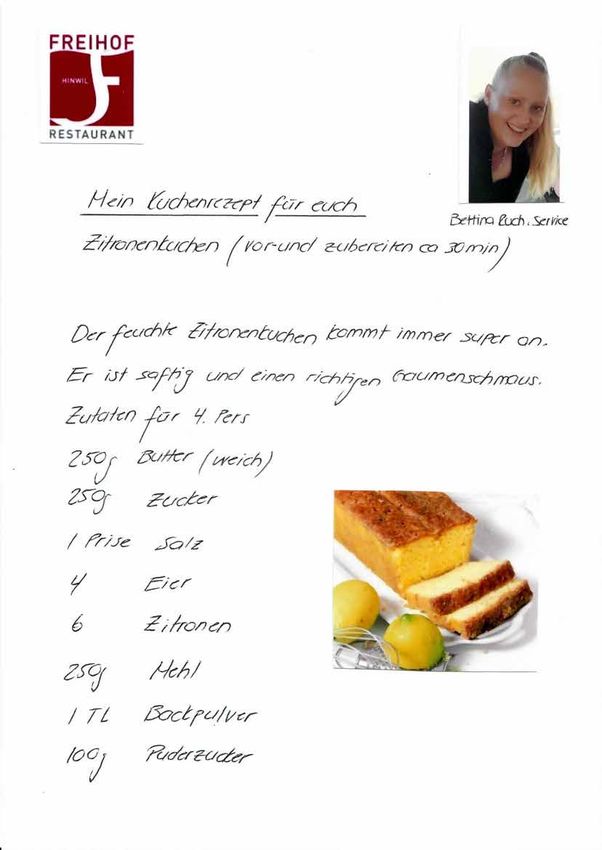 FREIHOF
HINWIL
RESTAURANT
Bettina Ruch, Service
Mein Kuchenrezept für euch
Zitronenkuchen (vor-und zubereiten ca 30min)
Der feuchte Zitronenkuchen kommt immer super an.
Er ist saftig und einen richtigen Gaumenschmaus.
Zutaten für 4. Pers
250g Butter (weich)
250g Zucker
1 Prise Salz
4 Eier
6 Zitronen
250g Mehl
1 TL Backpulver
100g Puderzucker